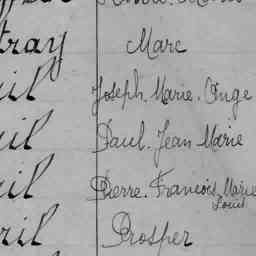 tray Marc
il Joseph. Marie. Ange
il Paul. Jean Marie
il Pierre. François Marie
Louis
ril Prosper